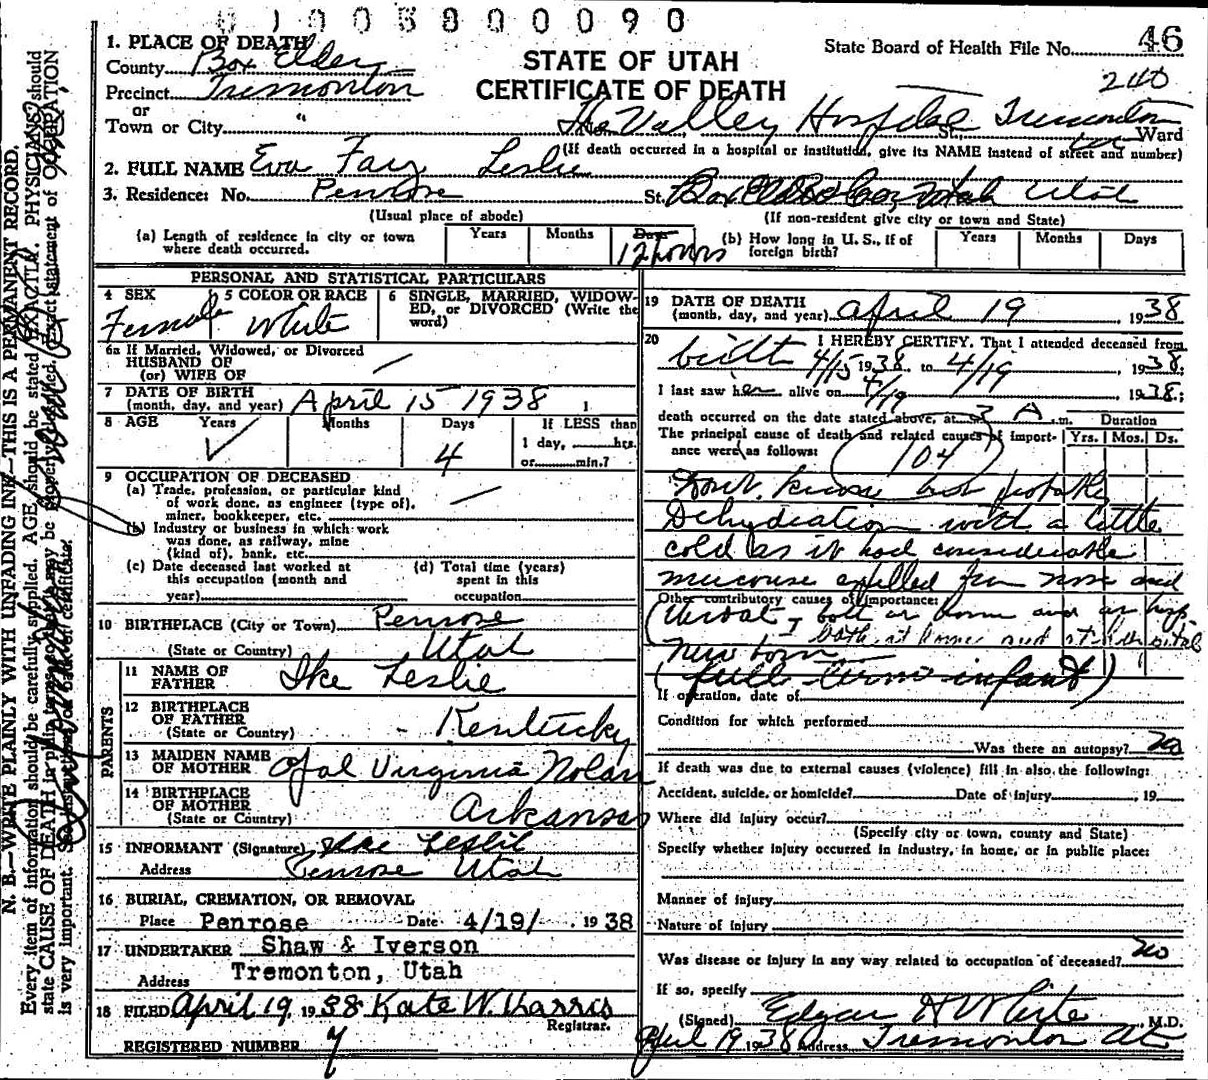 0100580090
1. PLACE OF DEATH
County Box Elder
STATE OF UTAH
State Board of Health File No. 46
Precinct Tremonton
CERTIFICATE OF DEATH
240
or
Town or City "
The Valley Hospital St. Tremonton Ward
(If death occurred in a hospital or institution, give its NAME instead of street and number)
2. FULL NAME Eva Fay Leslie
3. Residence: No. Penrose St. Box Elder Co, Utah Utah
(Usual place of abode) (If non-resident give city or town and State)
(a) Length of residence in city or town where death occurred. Years Months Days 12 hours
(b) How long in U. S., if of foreign birth? Years Months Days
PERSONAL AND STATISTICAL PARTICULARS
4 SEX Female
5 COLOR OR RACE White
6 SINGLE, MARRIED, WIDOW-
ED, or DIVORCED (Write the
word)
6a If Married, Widowed, or Divorced
HUSBAND OF
(or) WIFE OF
7 DATE OF BIRTH
(month, day, and year) April 15 1938
8 AGE Years Months Days 4
If LESS than
1 day, hrs.
or min.?
9 OCCUPATION OF DECEASED
(a) Trade, profession, or particular kind
of work done, as engineer (type of),
miner, bookkeeper, etc.
(b) Industry or business in which work
was done, as railway, mine
(kind of), bank, etc.
(c) Date deceased last worked at
this occupation (month and
year)
(d) Total time (years)
spent in this
occupation
10 BIRTHPLACE (City or Town) Penrose
(State or Country) Utah
PARENTS
11 NAME OF
FATHER Ike Leslie
12 BIRTHPLACE
OF FATHER
(State or Country) Kentucky
13 MAIDEN NAME
OF MOTHER Opal Virginia Nolan
14 BIRTHPLACE
OF MOTHER
(State or Country) Arkansas
15 INFORMANT (Signature) Ike Leslie
Address Penrose Utah
16 BURIAL, CREMATION, OR REMOVAL
Place Penrose Date 4/19/ 1938
17 UNDERTAKER Shaw & Iverson
Address Tremonton, Utah
18 FILED April 19 1938 Kate W. Harris
Registrar.
REGISTERED NUMBER 7
19 DATE OF DEATH
(month, day, and year) April 19, 1938
20 I HEREBY CERTIFY, That I attended deceased from
birth 4/15 1938, to 4/19, 1938;
I last saw her alive on 4/19 1938;
death occurred on the date stated above, at 3 A m. Duration
The principal cause of death and related causes of import-
ance were as follows: Yrs. Mos. Ds.
(104)
Don't know but probably
Dehydration with a little
cold as it had considerable
mucouse expelled from nose and
Other contributory causes of importance:
throat, both at home and at hosp.
both at home and at hospital
New born
(full term infant)
If operation, date of
Condition for which performed
Was there an autopsy? no
If death was due to external causes (violence) fill in also, the following:
Accident, suicide, or homicide? Date of injury , 19
Where did injury occur?
(Specify city or town, county and State)
Specify whether injury occurred in industry, in home, or in public place:
Manner of injury
Nature of injury
Was disease or injury in any way related to occupation of deceased? no
If so, specify
(Signed) Edgar H White, M.D.
April 19 1938 Address Tremonton Ut
N. B.—WRITE PLAINLY WITH UNFADING INK—THIS IS A PERMANENT RECORD.
Every item of information should be carefully supplied. AGE should be stated EXACTLY. PHYSICIANS should
state CAUSE OF DEATH in plain terms, so that it may be properly classified. Exact statement of OCCUPATION
is very important. See instructions on back of certificate.